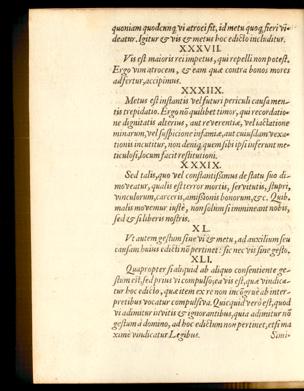 quoniam quodcunq; vi atroci fit, id metu quoq; fieri vi-
deatur. Igitur & vis & metus hoc edicto includitur.
XXXVII.
Vis est maioris rei impetus, qui repelli non potest.
Ergo vim atrocem, & eam quæ contra bonos mores
adfertur, accipimus.
XXXIIX.
Metus est instantis vel futuri periculi causa men-
tis trepidatio. Ergo nō quilibet timor, qui recordatio-
ne dignitatis alterius, aut reverentiæ, vel iactatione
minarum, vel suspicione infamiæ, aut cuiusdam vexa-
tionis incutitur, non deniq; quem sibi ipsi inferunt me-
ticulosi, locum facit restitutioni.
XXXIX.
Sed talis, quo vel constantissimus de statu suo di-
moveatur, qualis est terror mortis, servitutis, stupri,
vinculorum, carceris, amissionis bonorum, &c. Quib.
malis movemur iustè, non solùm si immineant nobis,
sed & si liberis nostris.
XL.
Vt autem gestum sive vi & metu, ad auxilium seu
causam huius edicti nō pertinet: sic nec vis sine gesto.
XLI.
Quapropter si aliquid ab aliquo consentiente ge-
stum est, sed prius vi compulso, ea vis est, quæ vindica-
tur hoc edicto, quæ item ex re non incōgruè ab inter-
pretibus vocatur compulsiva. Quicquid verò est, quod
vi adimitur invitis & ignorantibus, quia adimitur nō
gestum à domino, ad hoc edictum non pertinet, etsi ma
ximè vindicatur Legibus. Simi-